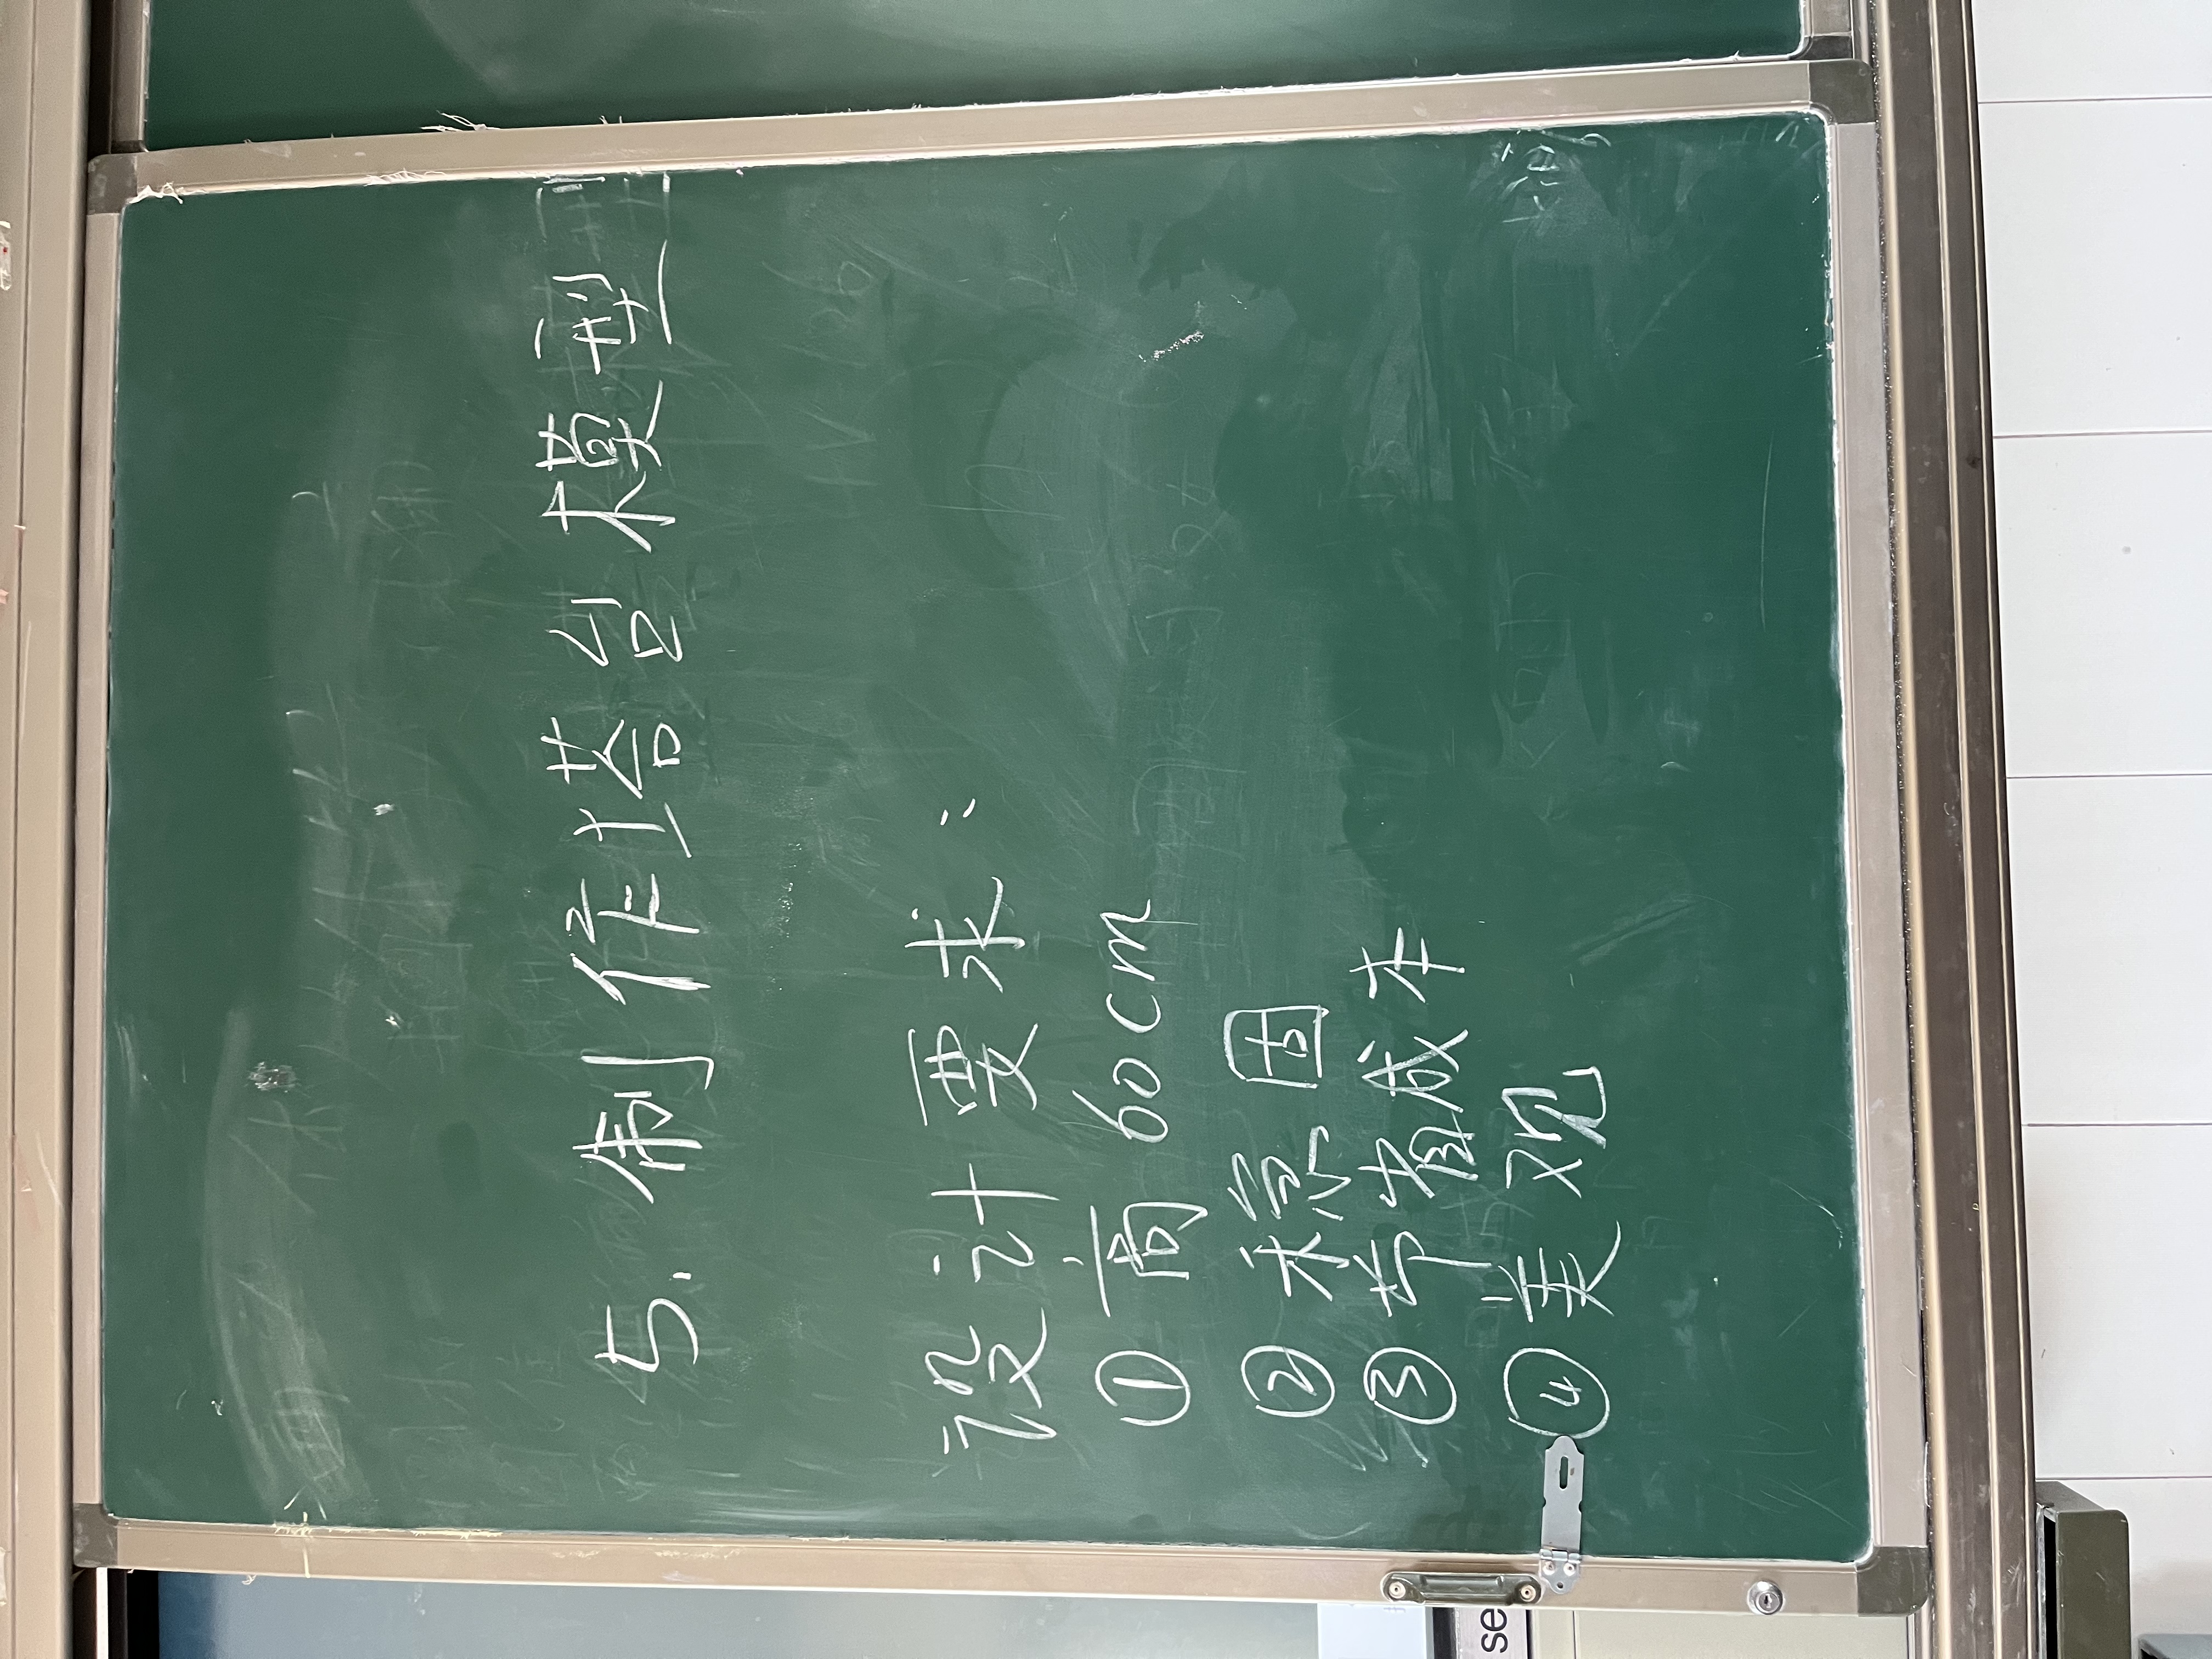 5. 制作塔台模型
设计要求:
① 高 60cm
② 稳固
③ 节省成本
④ 美观
se